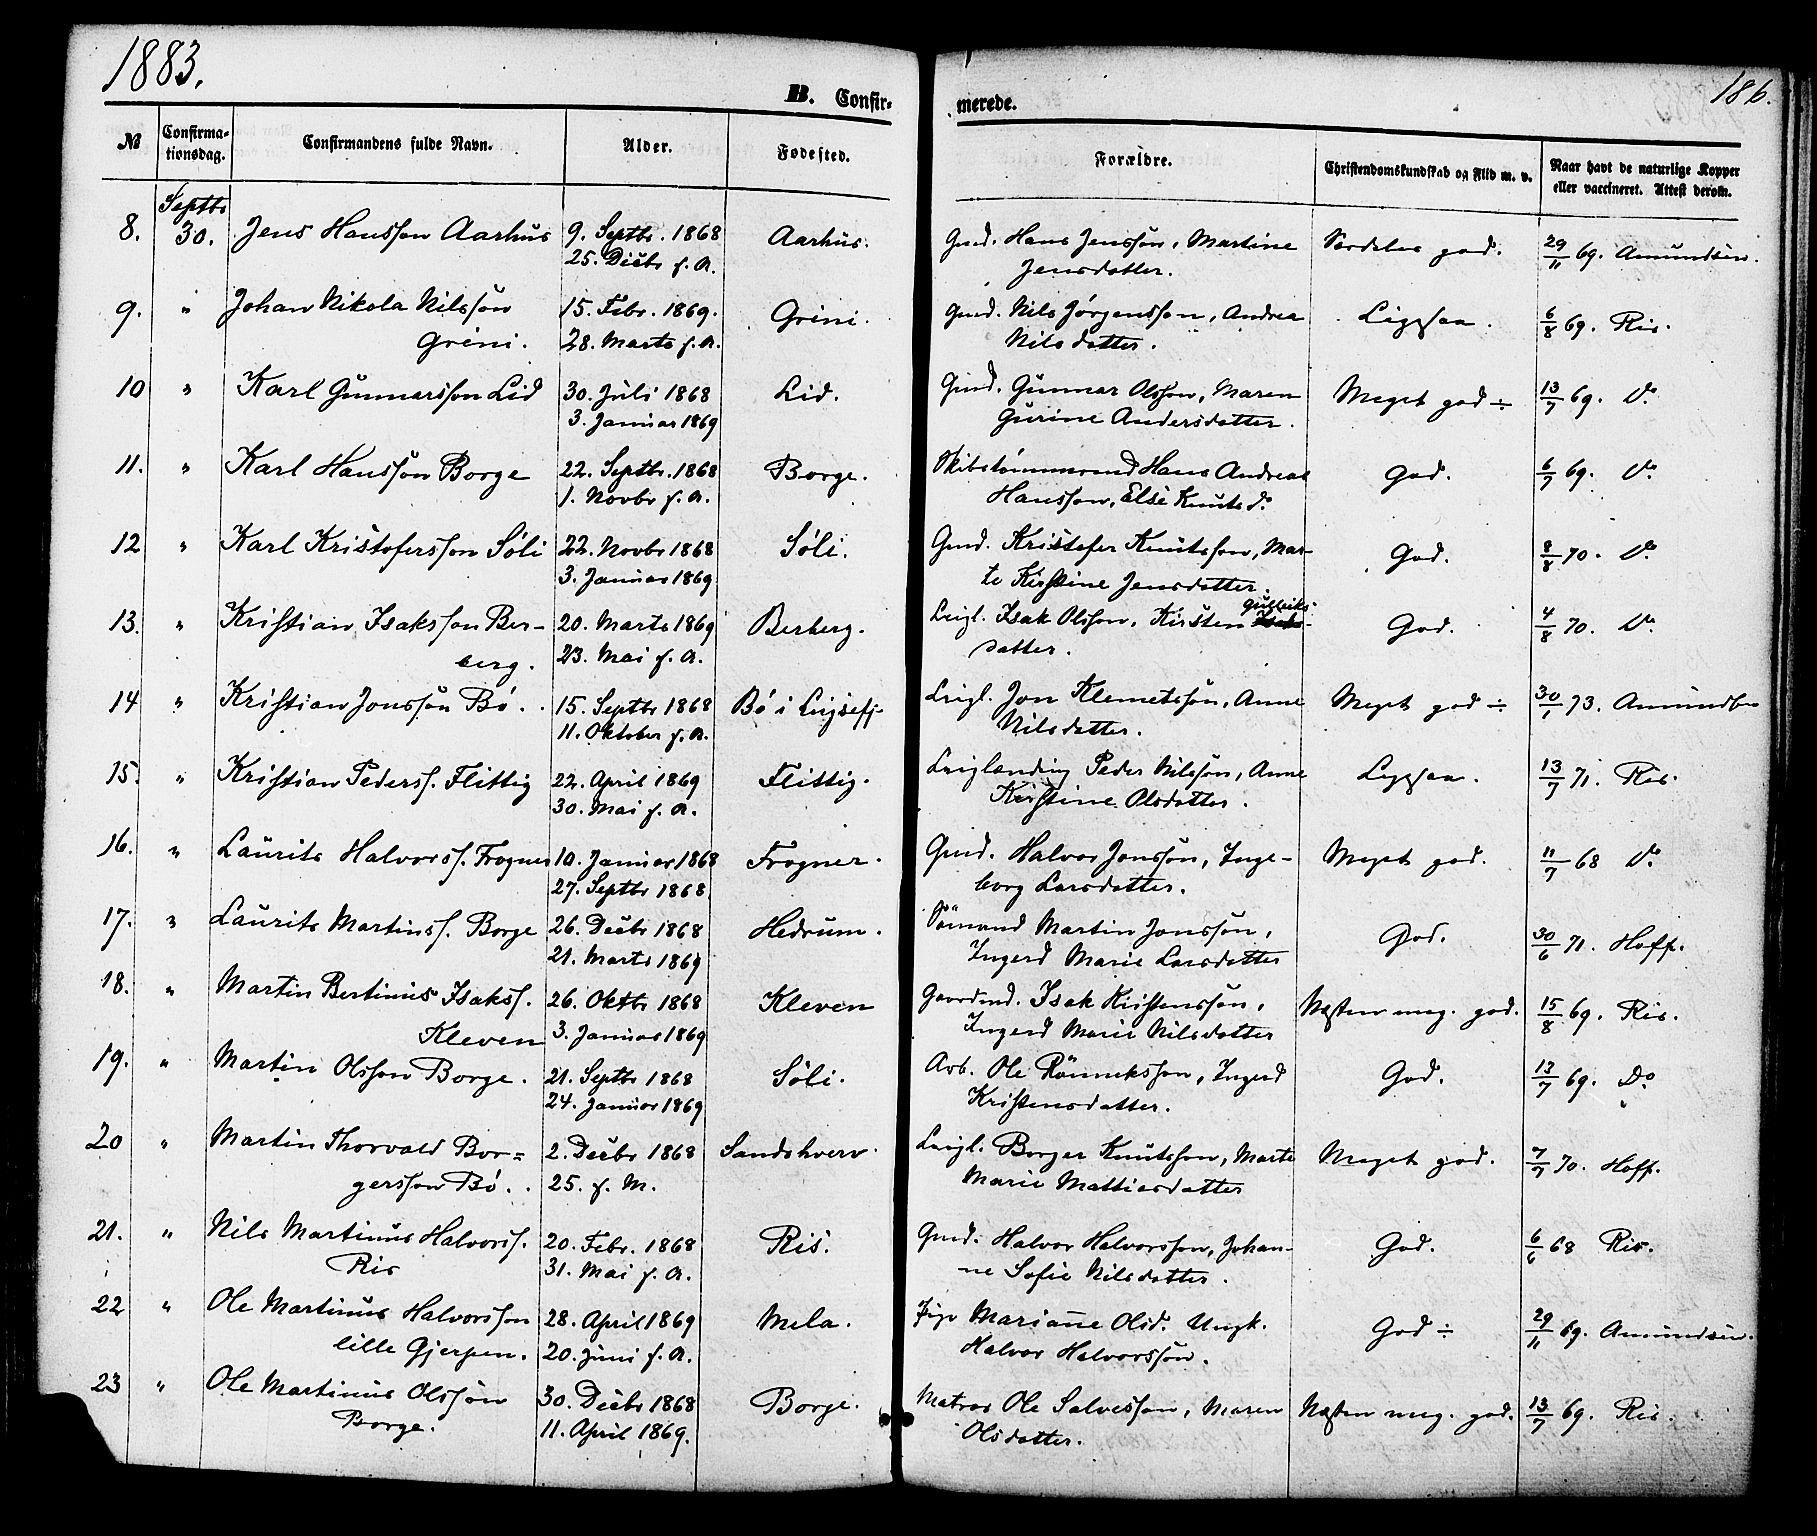 1883.
186.
B. Confir-
merede.
№ Confirma-tionsdag. Confirmandens fulde Navn. Alder. Fødested. Forældre. Christendomskundskab og Flid m. v. Naar havt de naturlige Kopper eller vaccineret. Attest derom.
8. Septbr 30. Jens Hansson Aarhus 9. Septbr. 1868 Aarhus. Gmd. Hans Jensson, Martine Særdeles god. 29/11 69. Amundsen.
25. Decbr s. A. Jensdatter.
9. " Johan Nikola Nilsson 15. Febr. 1869. Grini. Gmd. Nils Jørgensson, Andrea 6/8 69. Ris.
Grini. 28. Marts s. A. Nilsdatter.
10 " Karl Gunnarsson Lid 30. Juli 1868 Lid. Gmd. Gunnar Olsson, Maren Meget god ÷ 13/7 69. Do
3. Januar 1869 Gurine Andersdatter.
11. " Karl Hansson Borge 22. Septbr. 1868 Borge. Skibstømmermd Hans Andreas God. 6/7 69. Do
1. Novbr s. A. Hansson, Else Knutsd.
12 " Karl Kristofersson Søli 22. Novbr 1868 Søli. Gmd. Kristofer Knutsson, Mar- God. 8/8 70. Do
3. Januar 1869 te Kirstine Jensdatter.
13. " Kristian Isaksson Ber- 20. Marts 1869 Berberg. Leigl. Isak Olsson, Kirsten Gulleiks- God. 4/8 70. Do
berg. 23. Mai s. A. datter.
14 " Kristian Jonsson Bø. 15. Septbr 1868 Bø i Luksefj. Leigl. Jon Klemetsson, Anne Meget god ÷ 30/1 73. Amundsen
11. Oktober s. A. Nilsdatter.
15. " Kristian Pederss. Flittig 22. April 1869 Flittig. Leiglending Peder Nilsson, Anne 13/7 71. Ris.
30. Mai s. A. Kirstine Olsdatter.
16. " Laurits Halvorss. Frogner 10. Januar 1868 Frogner. Gmd. Halvor Jonsson, Inge- Meget god. 11/7 68 Do
27. Septbr 1868. borg Larsdatter.
17. " Laurits Martinss. Borge 26. Decbr 1868 Hedrum. Sømand Martin Jonsson, God. 30/6 71. Hoff.
21. Marts 1869 Ingerd Marie Larsdatter
18. " Martin Bertinius Isakss. 26. Oktbr 1868 Kleven Gaardmd. Isak Kristensson, Næsten meg. god. 15/8 69. Ris.
Kleven 3. Januar 1869 Ingerd Marie Nilsdatter
19. " Martin Olsson Borge. 21. Septbr 1868 Søli. Arb. Ole Rønneksson, Ingerd God. 13/7 69. Do
24. Januar 1869 Kristensdatter.
20 " Martin Thorvald Bor- 2. Decbr 1868 Sandshverv. Leigl. Borger Knutsson, Marte Meget god. 7/7 70. Hoff.
gersson Bø. 25. s. M. Marie Mattiasdatter
21. " Nils Martinus Halvorss. 20. Febr. 1868 Ris. Gmd. Halvor Halvorsson, Johan- God. 6/6 68 Ris.
Ris 31. Mai s. A. ne Sofie Nilsdatter.
22 " Ole Martinus Halvorsson 28. April 1869 Mela. Pige Mariane Olsd. Ungk. God ÷ 29/11 69. Amundsen.
lille Gjerpen. 20. Juni s. A. Halvor Halvorsson.
23 " Ole Martinus Olsson 30. Decbr 1868 Borge. Matros Ole Salvesson, Maren Næsten meg. god. 13/7 69. Ris.
Borge. 11. April 1869. Olsdatter.